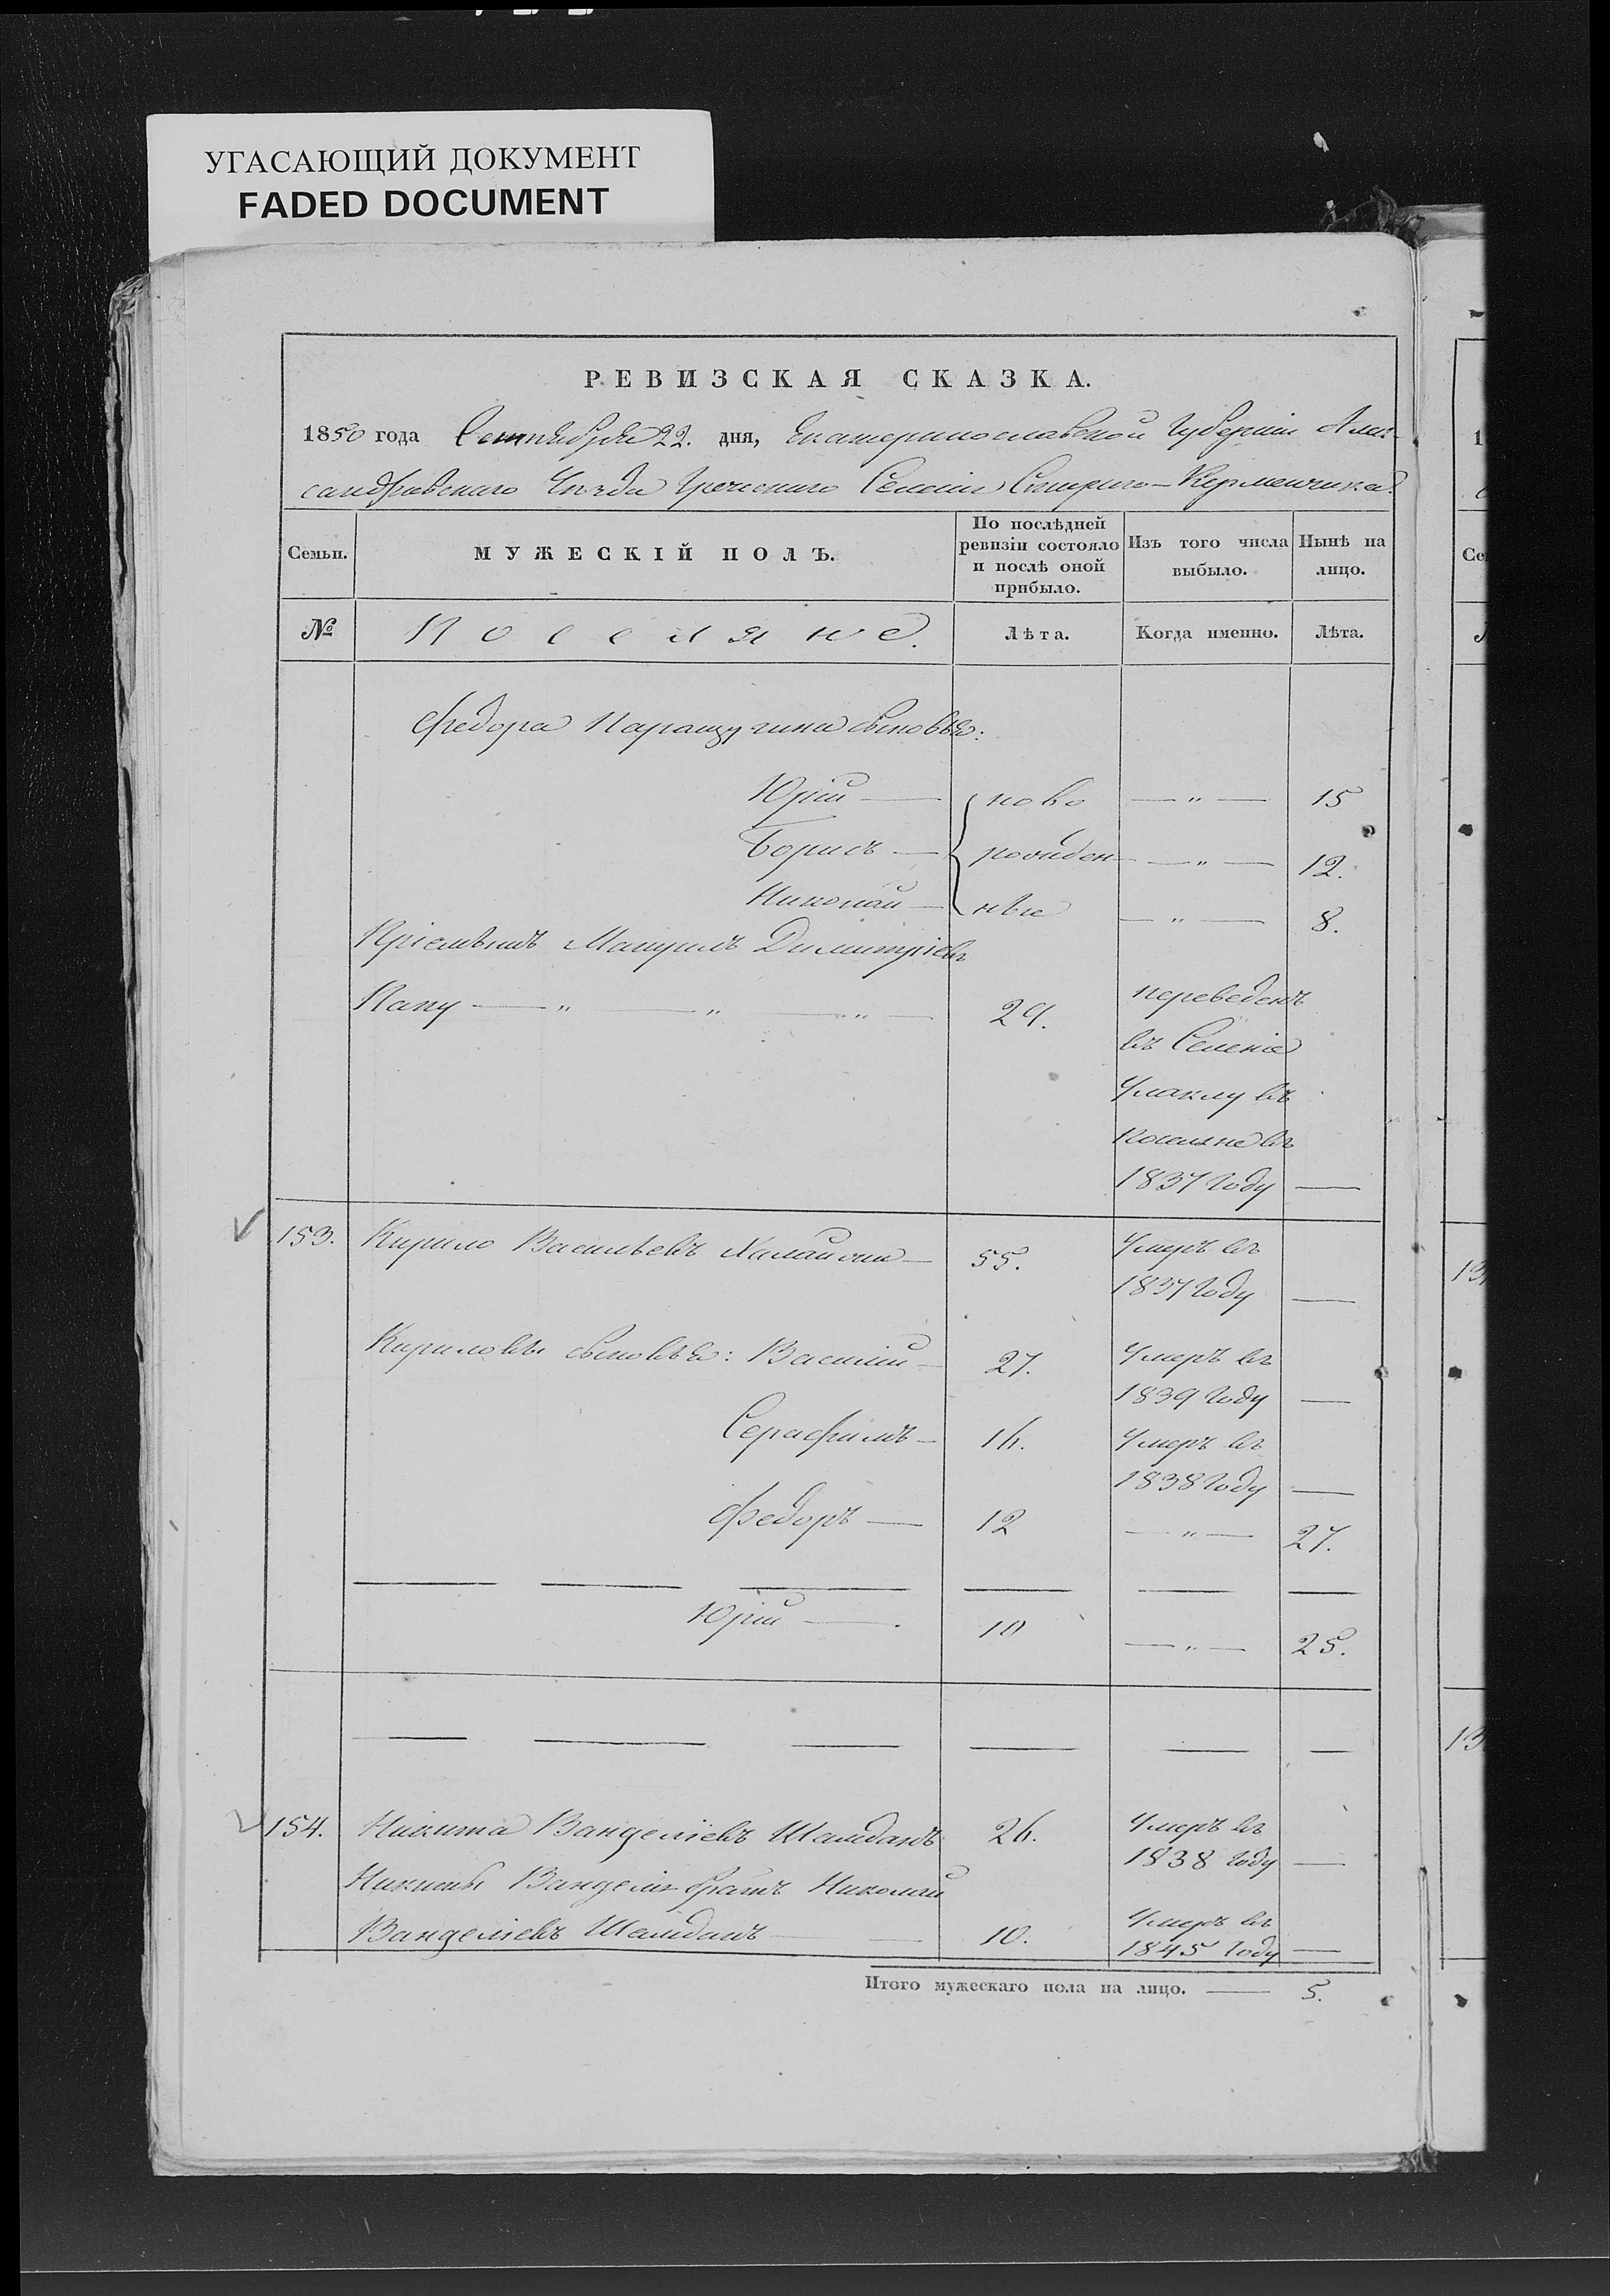 УГАСАЮЩИЙ ДОКУМЕНТ
FADED DOCUMENT
РЕВИЗСКАЯ СКАЗКА.
1850 года Сентября 22. дня, Екатеринославской Губерніи Алек-
сандровскаго Уезда Греческаго Селенія Стараго-Керменчика.
Семьи. МУЖЕСКІЙ ПОЛЪ. По послѣдней ревизіи состояло и послѣ оной прибыло. Изъ того числа выбыло. Нынѣ на лицо.
№ Поселяне. Лѣта. Когда именно. Лѣта.
Федора сыновья:
Юрій — ново — „ — 15
Борисъ — рожден — „ — 12.
Николай — ные — „ — 8.
Пріемышъ Мануилъ Димитріевъ
Папу — „ — „ — „ — 29. переведенъ
въ Селеніе
Улаклу въ
поселяне въ
1837 году —
153. Кирило Васильевъ 55. Умеръ въ
1837 году —
Кириловы сыновья: Василій — 27. Умеръ въ
1839 году —
Серафимъ — 16. Умеръ въ
1838 году —
Федоръ — 12 — „ — 27.
Юрій — 10 — „ — 25.
154. Никита Вангеліевъ Шамданъ 26. Умеръ въ
1838 году —
Никиты Вангелія братъ Николай
Вангеліевъ Шамданъ — 10. Умеръ въ
1845 году —
Итого мужескаго пола на лицо. — 5.